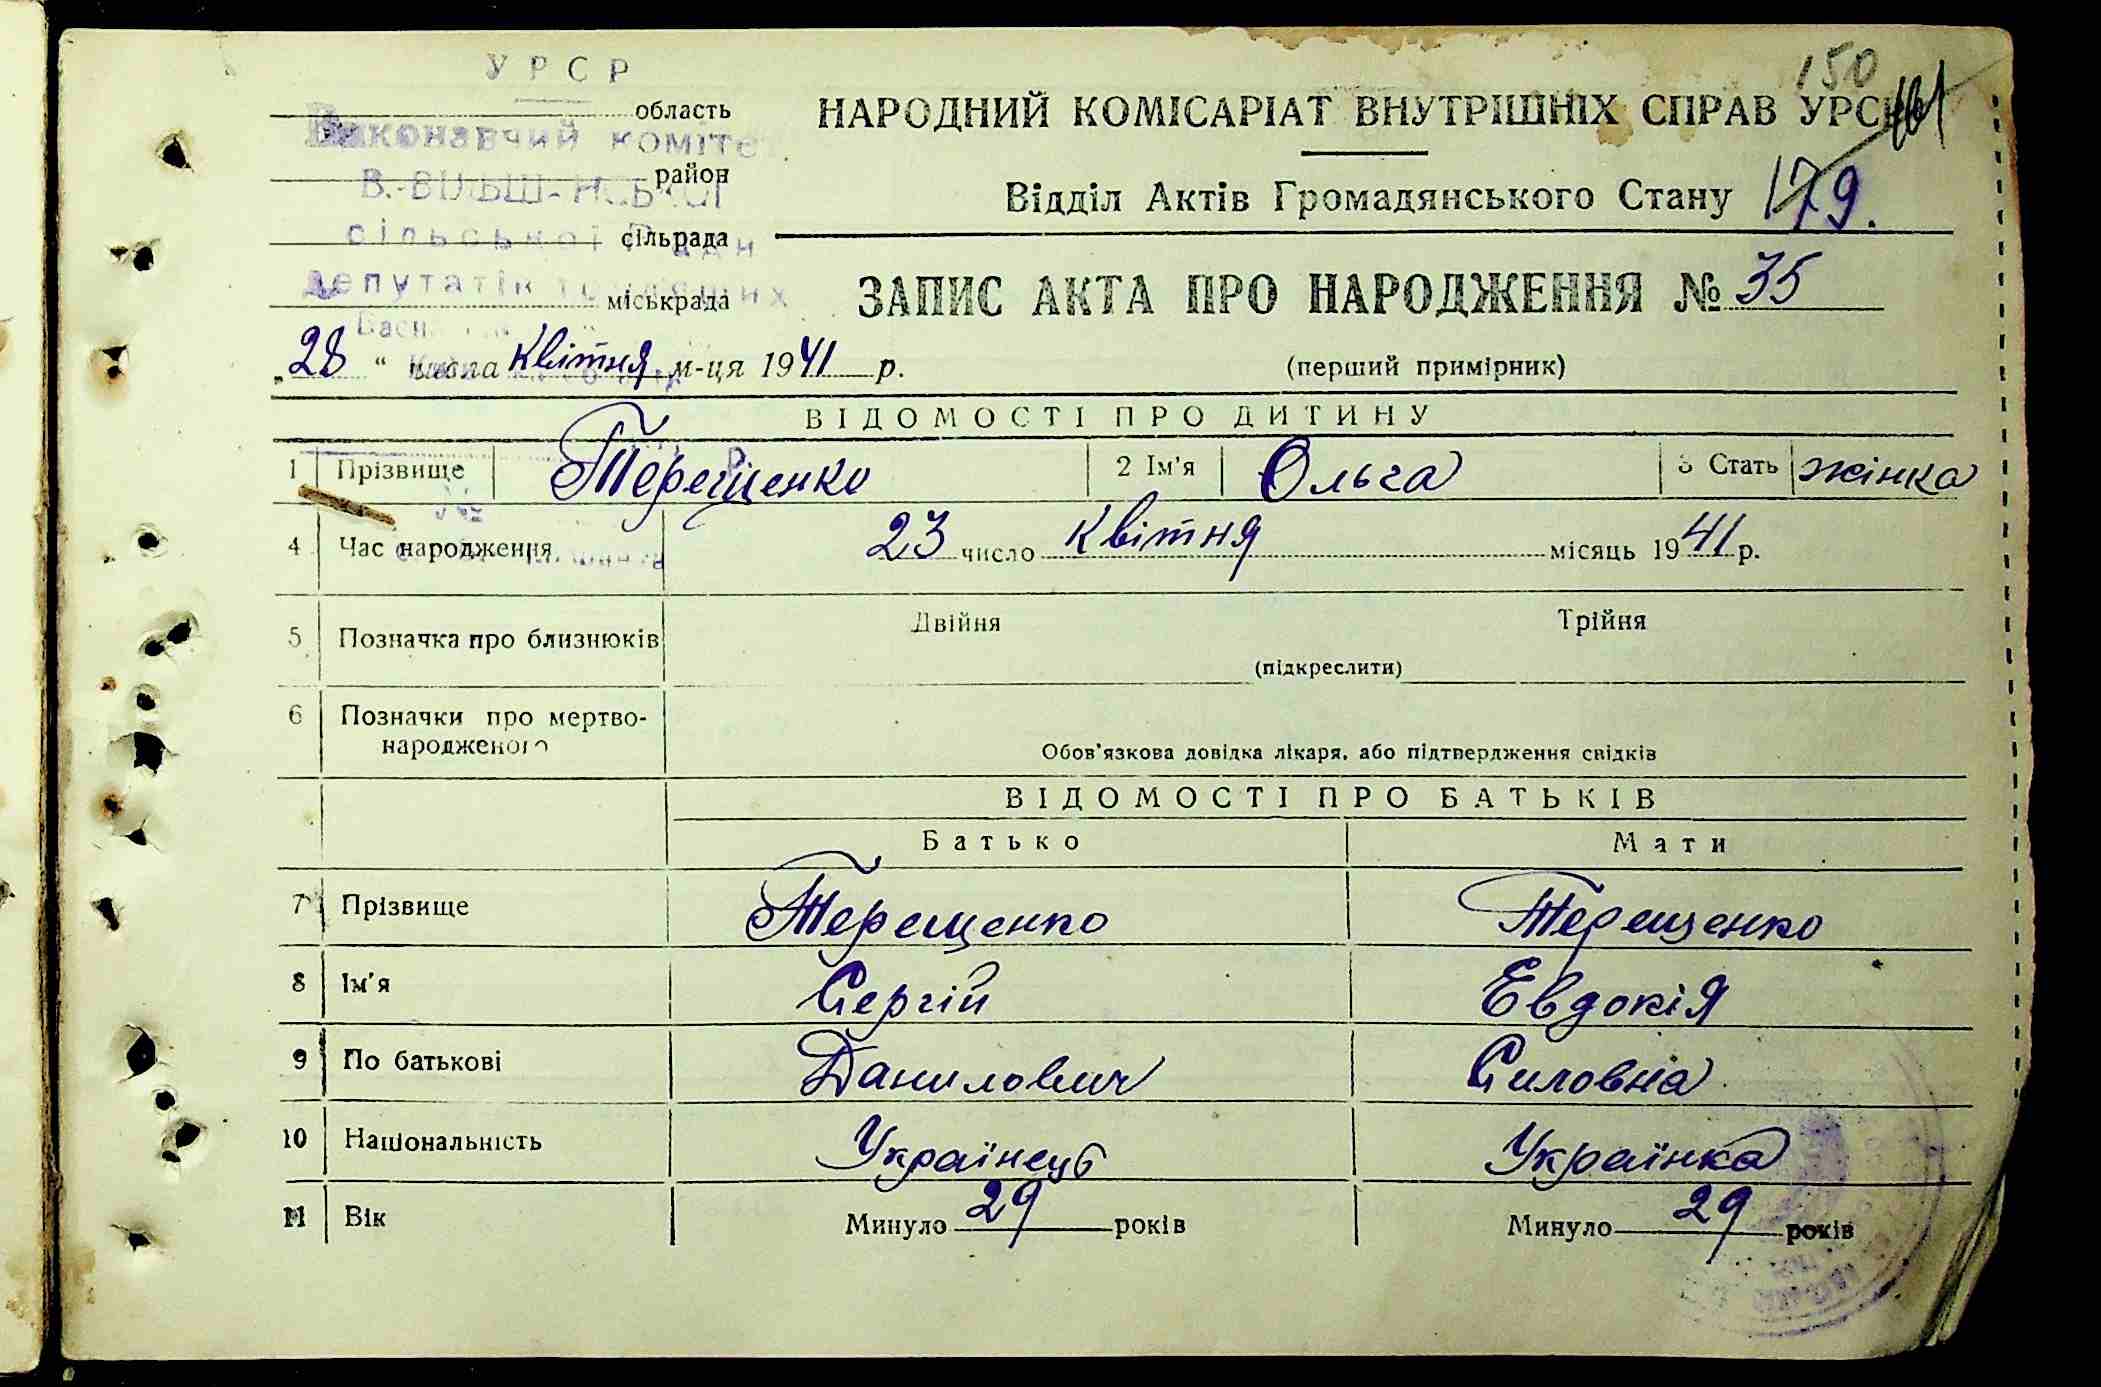 УРСР
область
Виконавчий комітет
район
сільської Ради
сільрада
депутатів трудящих
міськрада
150
161
НАРОДНИЙ КОМІСАРІАТ ВНУТРІШНІХ СПРАВ УРСР
Відділ Актів Громадянського Стану 179.
ЗАПИС АКТА ПРО НАРОДЖЕННЯ № 35
„28 “ числа Квітня м-ця 1941 р.
(перший примірник)
ВІДОМОСТІ ПРО ДИТИНУ
1 Прізвище Терещенко 2 Ім'я Ольга 3 Стать жінка
4 Час народження 23 число Квітня місяць 1941 р.
5 Позначка про близнюків Двійня Трійня
(підкреслити)
6 Позначки про мертво-
народженого
Обов'язкова довідка лікаря, або підтвердження свідків
ВІДОМОСТІ ПРО БАТЬКІВ
Батько Мати
7 Прізвище Терещенко Терещенко
8 Ім'я Сергій Евдокія
9 По батькові Данилович Силовна
10 Національність Українець Українка
11 Вік Минуло 29 років Минуло 29 років